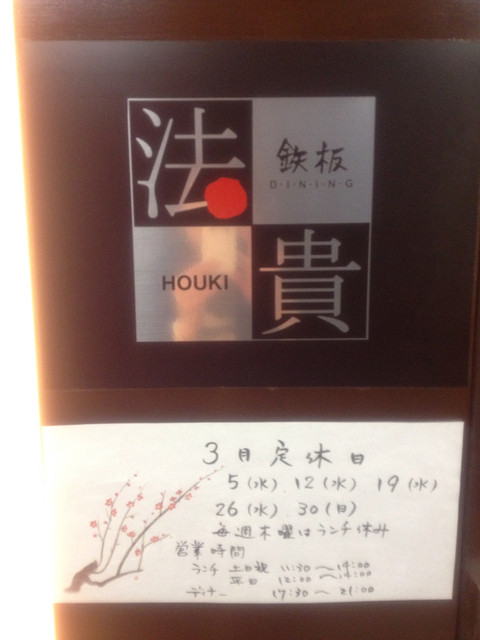 法
鉄板
D・I・N・I・N・G
HOUKI
貴
3月定休日
5(水) 12(水) 19(水)
26(水) 30(日)
毎週木曜はランチ休み
営業時間
ランチ 土日祝 11:30〜14:00
平日 12:00〜14:00
ディナー 17:30〜21:00